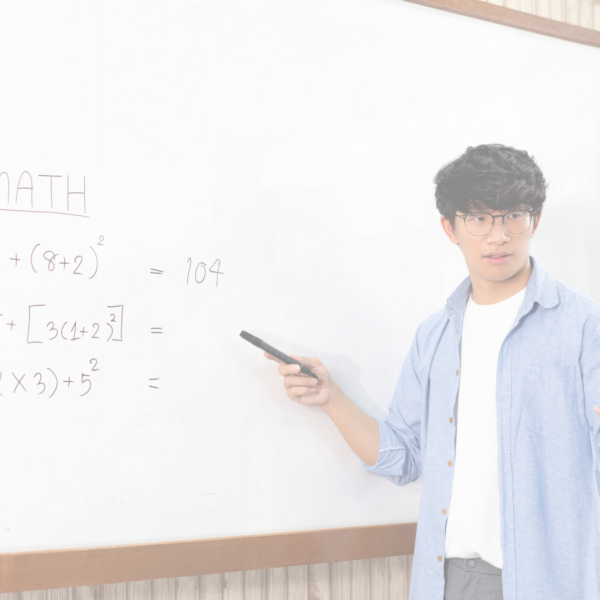 MATH
+ (8+2)² = 104
+ [3(1+2)²] =
2 × 3) + 5² =